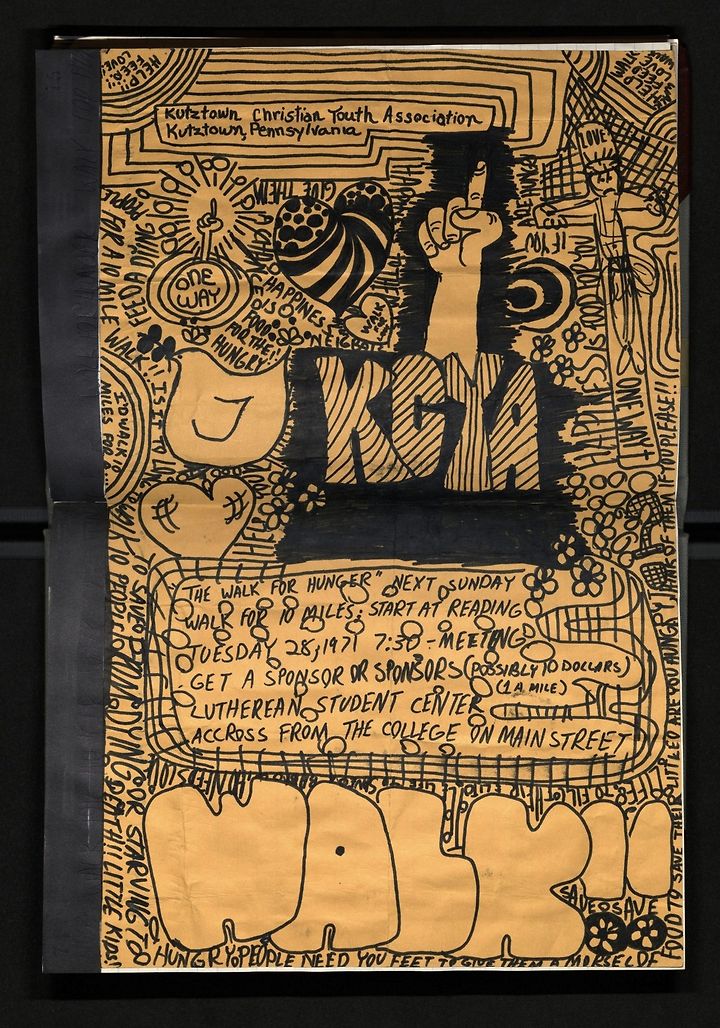 HELP!!
FEEA!!
LOVE!
Kutztown Christian Youth Association
Kutztown, Pennsylvania
LOVE
GIVE THEM
A CHANCE
HAPPINES
IS
FOOD
FOR THE
HUNGRY!!
ONE
WAY
PEOPLE
FOR A 10 MILE
WALK!! IS IT TO
FEED DYING
IF YOU
ARE HUNGRY
HAPPINESS IS FOOD FOR YOU
ONE WAY
KCYA
I'D WALK TO
MILES FOR A
HELP
"THE WALK FOR HUNGER" NEXT SUNDAY
WALK FOR 10 MILES; START AT READING
TUESDAY 28, 1971 7:30 - MEETING
GET A SPONSOR OR SPONSORS (POSSIBLY 10 DOLLARS)
(1 A MILE)
LUTHEREAN STUDENT CENTER
ACCROSS FROM THE COLLEGE ON MAIN STREET
THINK OF THEM IF YOU PLEASE!!
ARE YOU HUNGRY
TO SAVE
DYING OR STARVING TO
DEATH!! LITTLE KIDS!
WALK!!
SAVE SAVE
HUNGRY PEOPLE NEED YOU FEET TO GIVE THEM A MORSEL OF
FOOD TO SAVE THEIR